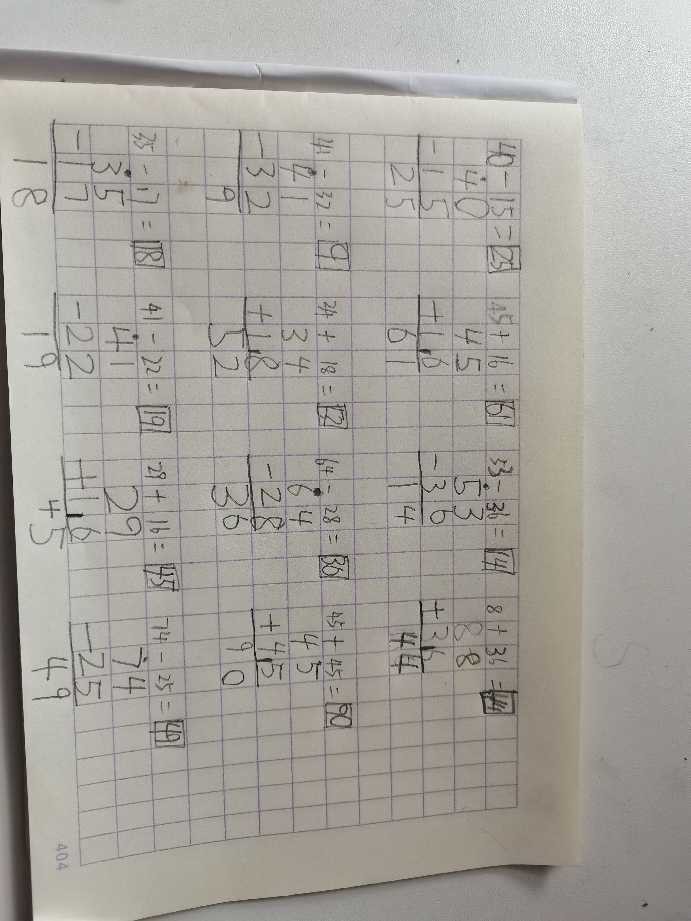 40-15=25 45+16=61 53-36=14 8+36=44
40 45 53 8
-15 +16 -36 +36
25 61 14 44
41-32=9 34+18=52 64-28=36 45+45=90
41 34 64 45
-32 +18 -28 +45
9 52 36 90
35-17=18 41-22=19 29+16=45 74-25=49
35 41 29 74
-17 -22 +16 -25
18 19 45 49
404